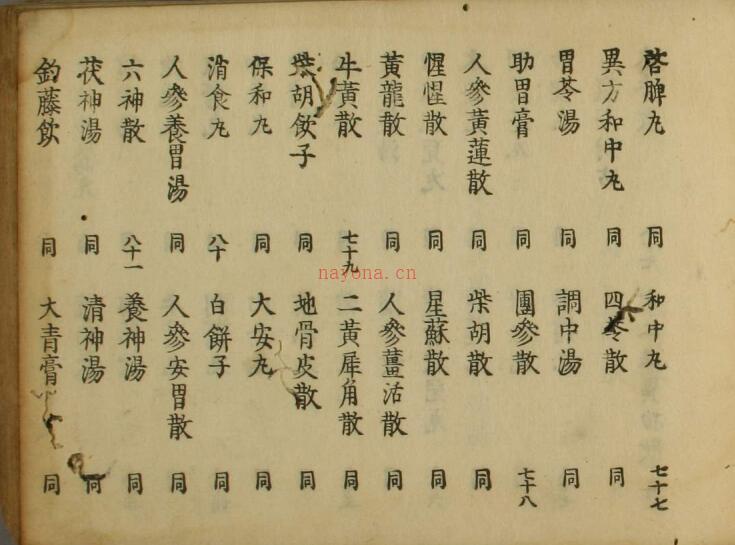 啓脾丸 同 和中丸 七十七
異方和中丸 同 四苓散 同
胃苓湯 同 調中湯 同
助胃膏 同 團參散 七十八
人參黃蓮散 同 柴胡散 同
惺惺散 同 星蘇散 同
黃龍散 同 人參薑活散 同
牛黃散 七十九 二黃犀角散 同
柴胡飲子 同 地骨皮散 同
保和丸 同 大安丸 同
消食丸 八十 白餅子 同
人參養胃湯 同 人參安胃散 同
六神散 八十一 養神湯 同
茯神湯 同 清神湯 同
釣藤飲 同 大青膏 同
nayona.cn